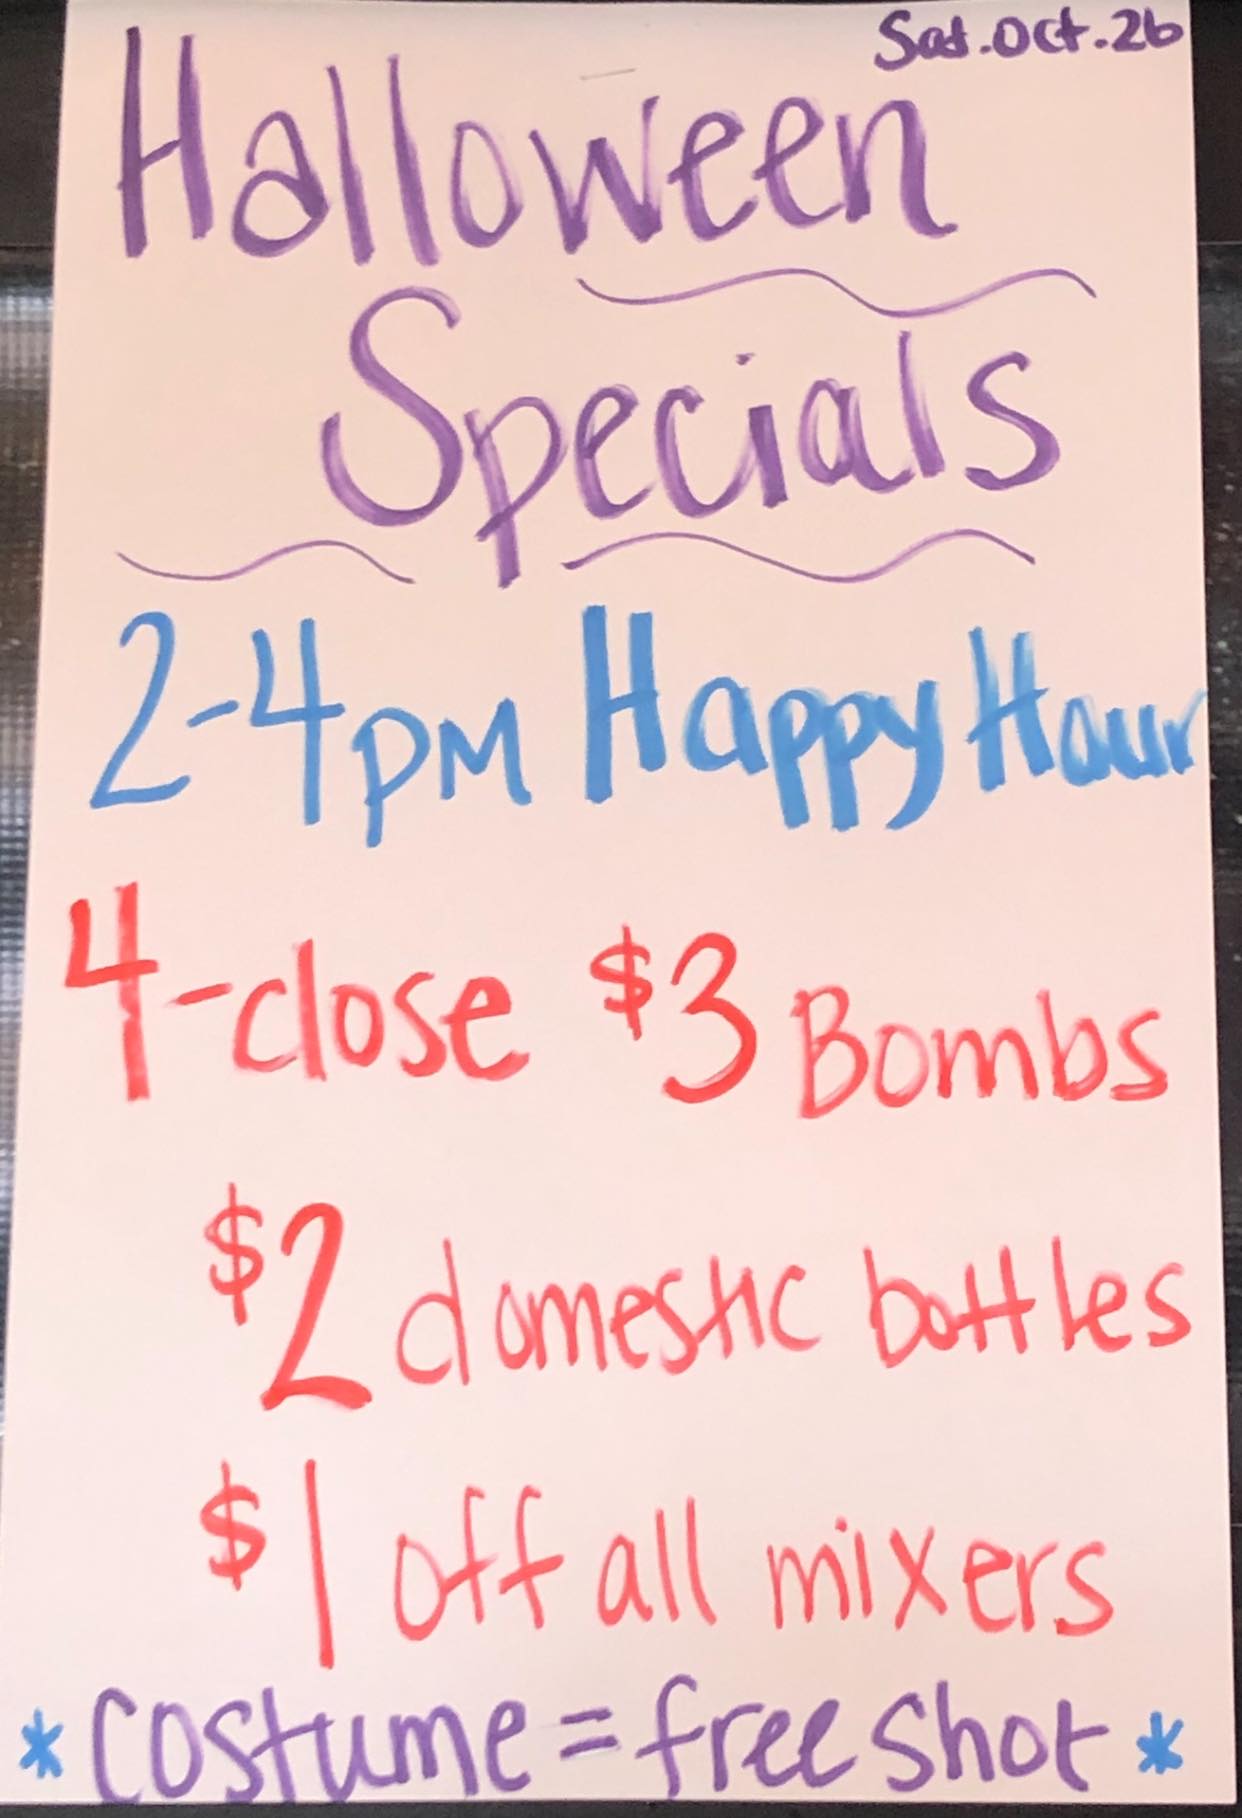 Sat. Oct. 26
Halloween
Specials
2-4pm Happy Hour
4-close $3 Bombs
$2 domestic bottles
$1 off all mixers
* Costume = free shot *